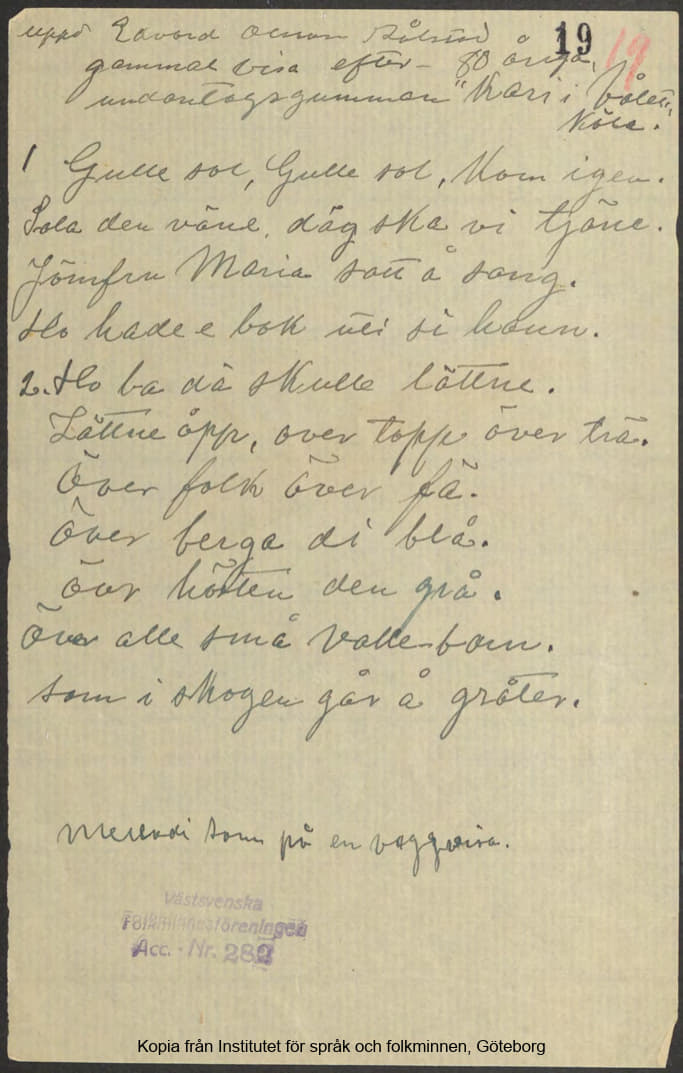 uppt Edvard Olsson
19 19
gammal visa efter 80 åriga,
undantagsgumman "Kari i
Köla.
1 Gulle sol, Gulle sol, Kom igen.
Sola den väne, däg ska vi tjäne.
Jömfru Maria satt å sang.
Ho hade e bok uti si hann.
2. Ho ba då skulle lättne.
Lättne öpp, over topp över trä.
Över folk över fä.
Över berga di blå.
över den grå.
Över alle små Valle-barn.
som i skogen går å gråter.
Mellodi som på en vaggvisa.
Västsvenska
Folkminnesföreningen
Acc. - Nr. 282
Kopia från Institutet för språk och folkminnen, Göteborg